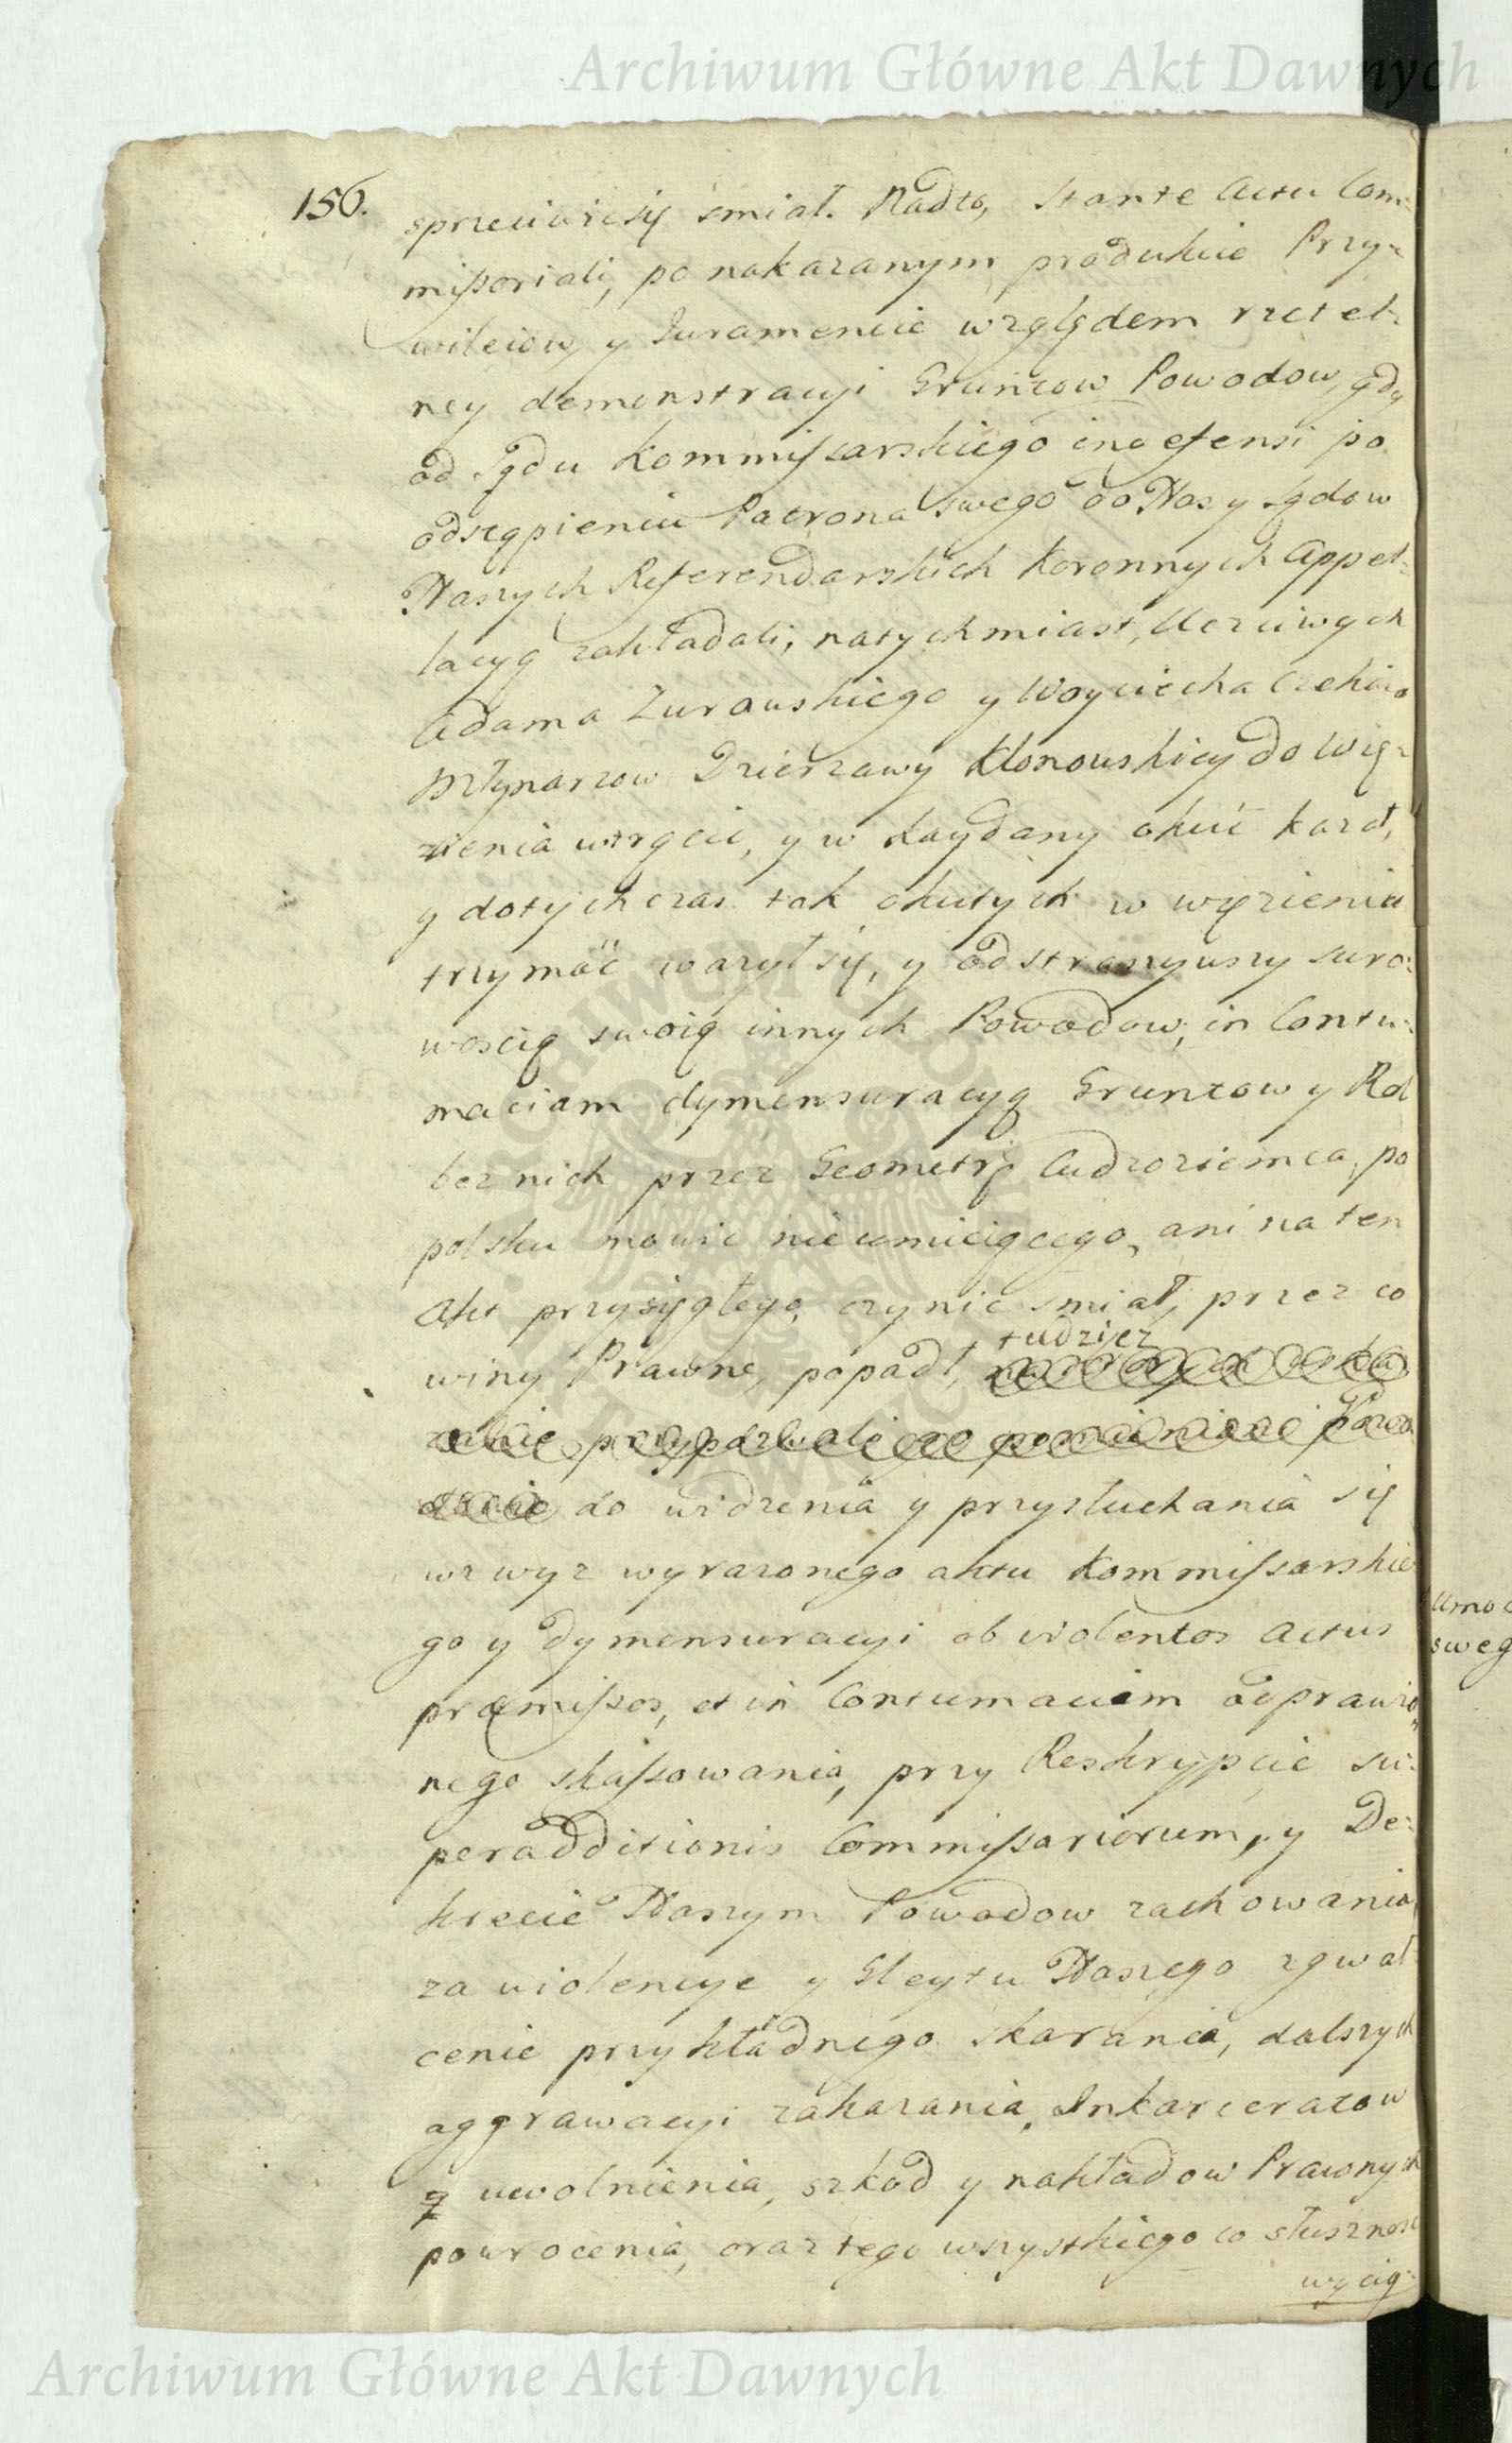 Archiwum Główne Akt Dawnych
156.
sprzeciwić się smiał. Nadto, stante Actu Com=
mißoriali, po nakazanym produkcie Przy=
wileiow, y Juramencie względem rzetel=
ney demonstracyi Gruntow Powodow, gdy
od Sądu Kommißarskiego in defensi po
odstąpieniu Patrona swego do Nas y Sądow
Naszych Referendarskich Koronnych Appel=
lacyą zakładali, natychmiast, Uczciwych
Adama Zurawskiego y Woyciecha
Młynarzow Dzierzawy Klonowskiey do Wię=
zienia wtrącić, y w kaydany okuć kazał,
y dotychczas tak okutych w więzieniu
trzymać wazył się, y odstraszywszy suro=
woscią swoią innych Powodow, in Contu=
maciam dymensuracyą Gruntow y Rol
bez nich przez Geometrę Cudzoziemca, po
polsku mowić nieumieiącego, ani na ten
Akt przysięgłego, czynić smiał, przez co
tudziez
winy Prawne, popadł,
do widzenia y przysłuchania się
wzwyz wyrazonego aktu Kommißarskie
go y dymensuracyi ob violentos actus
præmißos, et in Contumaciam odprawio=
nego skaßowania, przy Reskrypcie su=
peradditionis Commißariorum, y De=
krecie Naszym Powodow zachowania
za violencye y Gleytu Naszego zgwał=
cenie przykładnego skarania, dalszych
aggrawacyi zakazania, Inkarceratow
uwolnienia, szkod y nakładow Prawnych
powrocenia, oraz tego wszystkiego co słusznosc
wyciąg=
Umoc
sweg
Archiwum Główne Akt Dawnych